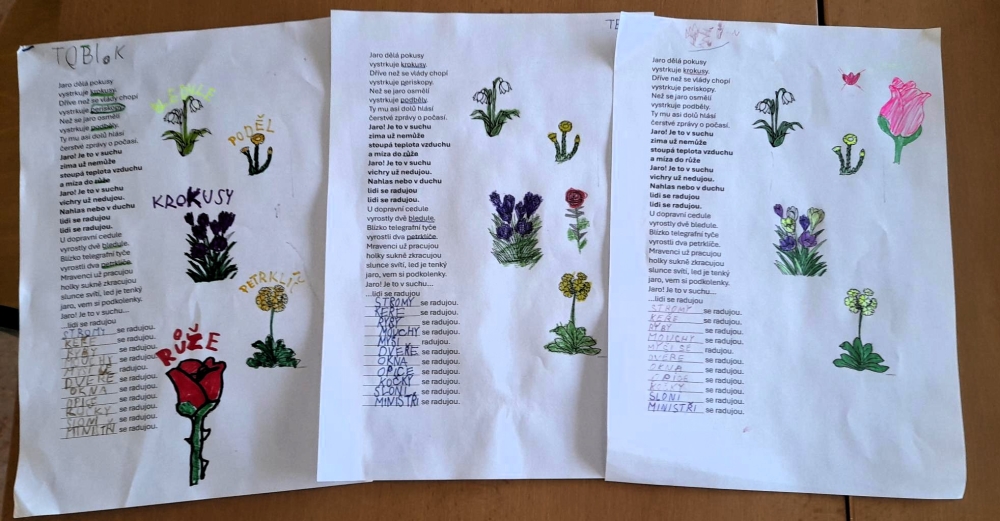 TOBI.K
Jaro dělá pokusy
vystrkuje krokusy.
Dříve než se vlády chopí
vystrkuje periskopy.
Než se jaro osmělí
vystrkuje podběly.
Ty mu asi dolů hlásí
čerstvé zprávy o počasí.
Jaro! Je to v suchu
zima už nemůže
stoupá teplota vzduchu
a míza do růže
Jaro! Je to v suchu
vichry už nedujou.
Nahlas nebo v duchu
lidi se radujou.
lidi se radujou.
U dopravní cedule
vyrostly dvě bledule.
Blízko telegrafní tyče
vyrostli dva petrklíče.
Mravenci už pracujou
holky sukně zkracujou
slunce svítí, led je tenký
jaro, vem si podkolenky.
Jaro! Je to v suchu...
...lidi se radujou
STROMY se radujou.
KEŘE se radujou.
RYBY se radujou.
MOUCHY se radujou.
MYŠI se radujou.
DVEŘE se radujou.
OKNA se radujou.
OPIC se radujou.
KOČKY se radujou.
SLONI se radujou.
MINISTŘI se radujou.
PODĚL
KROKUSY
PETRKLÍČ
RŮŽE
TE
Jaro dělá pokusy
vystrkuje krokusy.
Dříve než se vlády chopí
vystrkuje periskopy.
Než se jaro osmělí
vystrkuje podběly.
Ty mu asi dolů hlásí
čerstvé zprávy o počasí.
Jaro! Je to v suchu
zima už nemůže
stoupá teplota vzduchu
a míza do růže
Jaro! Je to v suchu
vichry už nedujou.
Nahlas nebo v duchu
lidi se radujou.
lidi se radujou.
U dopravní cedule
vyrostly dvě bledule.
Blízko telegrafní tyče
vyrostli dva petrklíče.
Mravenci už pracujou
holky sukně zkracujou
slunce svítí, led je tenký
jaro, vem si podkolenky.
Jaro! Je to v suchu...
...lidi se radujou
STROMY se radujou.
KEŘE se radujou.
RYBY se radujou.
MOUCHY se radujou.
MYŠI radujou.
DVEŘE se radujou.
OKNA se radujou.
OPICE se radujou.
KOČKY se radujou.
SLONI se radujou.
MINISTŘI se radujou.
Jaro dělá pokusy
vystrkuje krokusy.
Dříve než se vlády chopí
vystrkuje periskopy.
Než se jaro osmělí
vystrkuje podběly.
Ty mu asi dolů hlásí
čerstvé zprávy o počasí.
Jaro! Je to v suchu
zima už nemůže
stoupá teplota vzduchu
a míza do růže
Jaro! Je to v suchu
vichry už nedujou.
Nahlas nebo v duchu
lidi se radujou.
lidi se radujou.
U dopravní cedule
vyrostly dvě bledule.
Blízko telegrafní tyče
vyrostli dva petrklíče.
Mravenci už pracujou
holky sukně zkracujou
slunce svítí, led je tenký
jaro, vem si podkolenky.
Jaro! Je to v suchu...
...lidi se radujou
STROMY se radujou.
KEŘE se radujou.
RYBY se radujou.
MOUCHY se radujou.
MYŠI SE radujou.
DVEŘE se radujou.
OKNA se radujou.
OPICE se radujou.
KOČKY se radujou.
SLONI se radujou.
MINISTŘI se radujou.